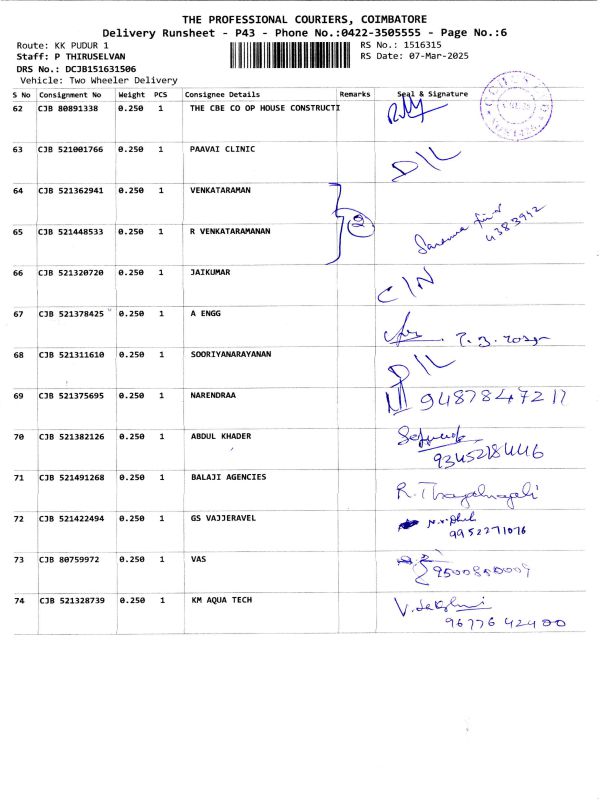 THE PROFESSIONAL COURIERS, COIMBATORE
Delivery Runsheet - P43 - Phone No.:0422-3505555 - Page No.:6
Route: KK PUDUR 1 RS No.: 1516315
Staff: P THIRUSELVAN RS Date: 07-Mar-2025
DRS No.: DCJB151631506
Vehicle: Two Wheeler Delivery
S No Consignment No Weight PCS Consignee Details Remarks Seal & Signature
62 CJB 80891338 0.250 1 THE CBE CO OP HOUSE CONSTRUCTI
63 CJB 521001766 0.250 1 PAAVAI CLINIC D/L
64 CJB 521362941 0.250 1 VENKATARAMAN
2
65 CJB 521448533 0.250 1 R VENKATARAMANAN
66 CJB 521320720 0.250 1 JAIKUMAR C/N
67 CJB 521378425 0.250 1 A ENGG
68 CJB 521311610 0.250 1 SOORIYANARAYANAN D/L
69 CJB 521375695 0.250 1 NARENDRAA 9487847211
70 CJB 521382126 0.250 1 ABDUL KHADER
71 CJB 521491268 0.250 1 BALAJI AGENCIES
72 CJB 521422494 0.250 1 GS VAJJERAVEL
9952271076
73 CJB 80759972 0.250 1 VAS
74 CJB 521328739 0.250 1 KM AQUA TECH
96776 42400